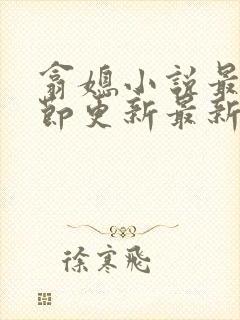 翁媳小说最
节更新最新
徐寒飞